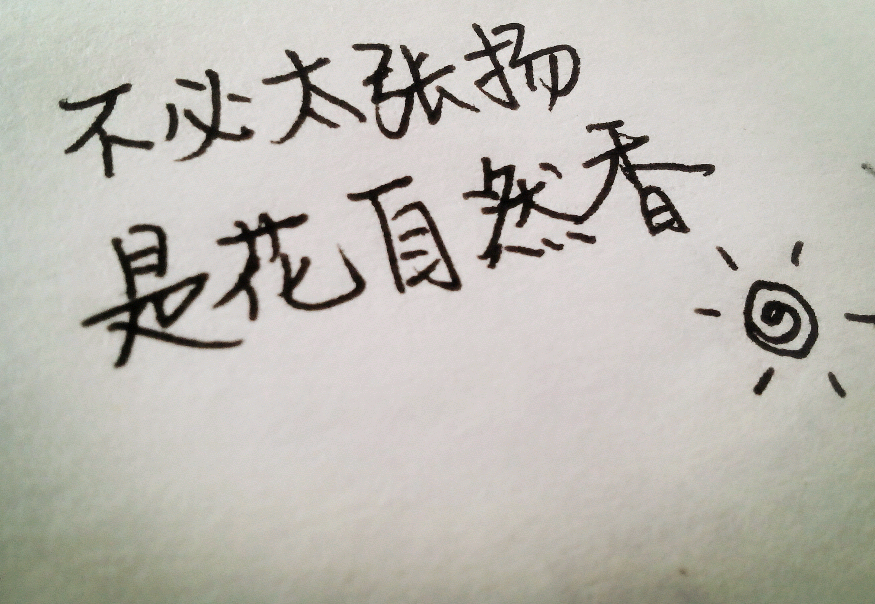 不必太张扬
是花自然香